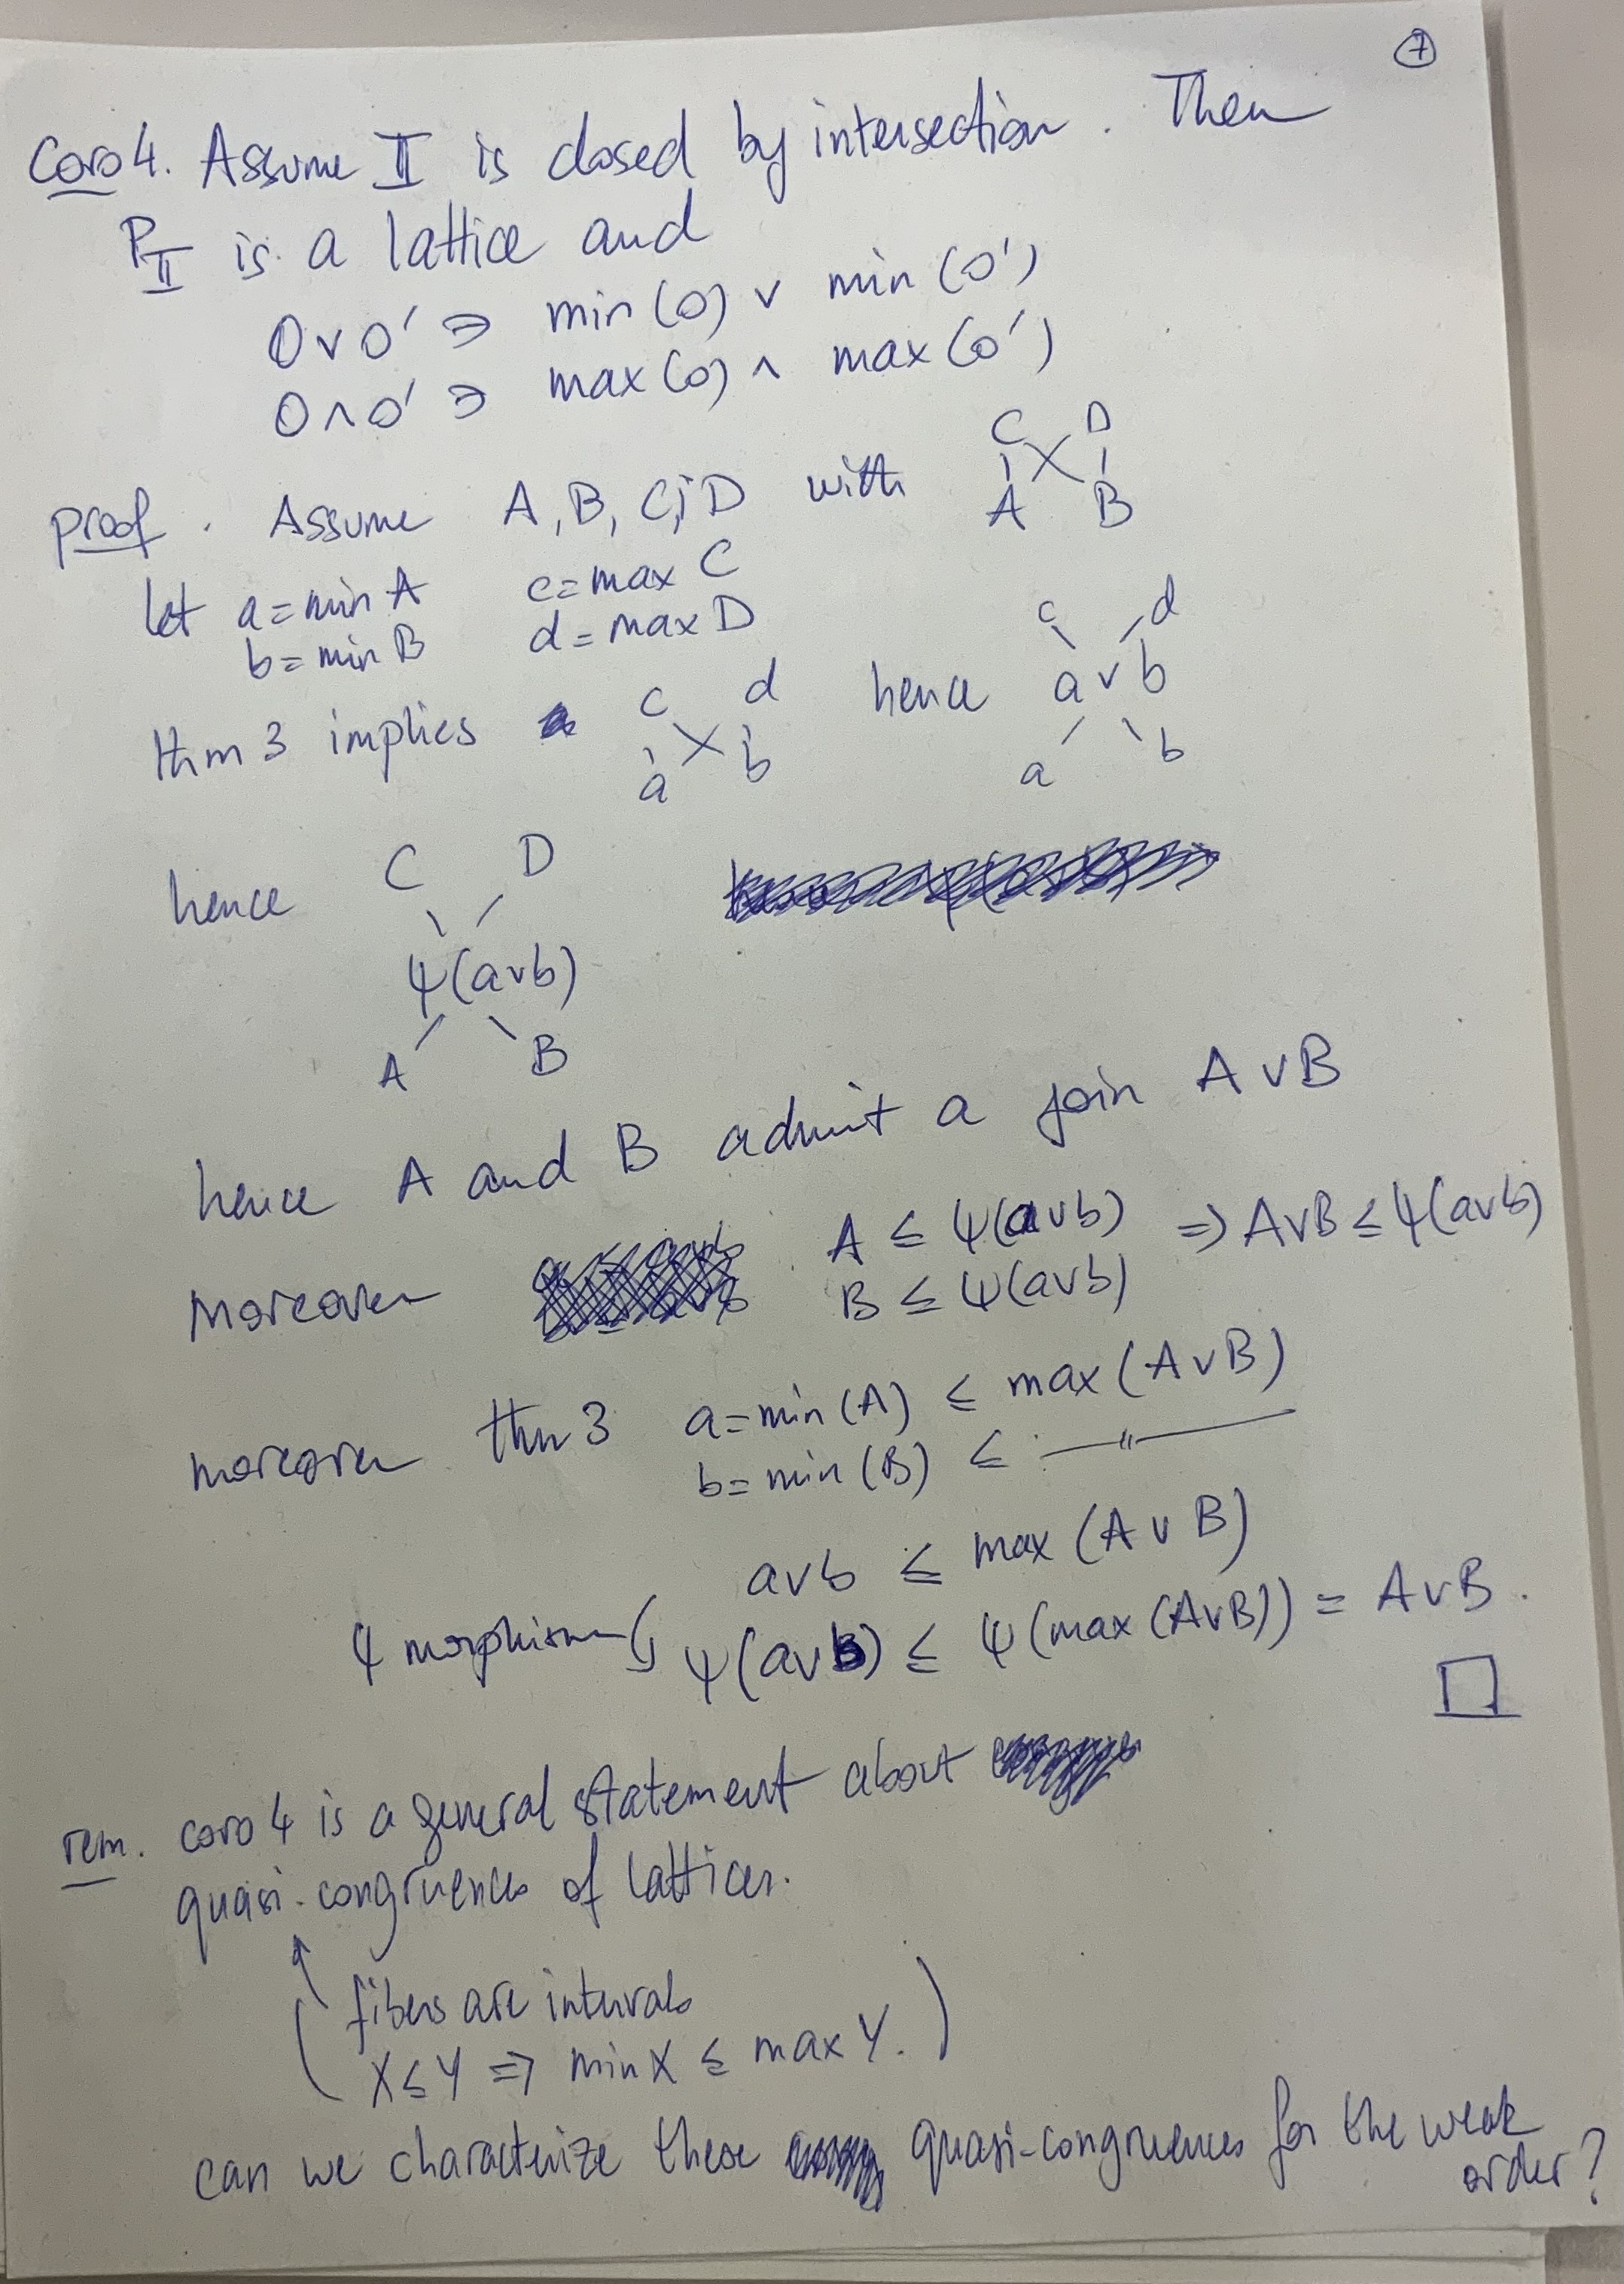 ⑦
Coro 4. Assume 𝕀 is closed by intersection. Then
P_𝕀 is a lattice and
O ∨ O' ∋ min(O) ∨ min(O')
O ∧ O' ∋ max(O) ∧ max(O')
proof. Assume A, B, C, D with
C D
A B
let a = min A c = max C
b = min B d = max D
thm 3 implies
c d
a b
hence
c d
a ∨ b
a b
hence
C D
ψ(a∨b)
A B
hence A and B admit a join A ∨ B
Moreover A ≤ ψ(a∨b) ⇒ A∨B ≤ ψ(a∨b)
B ≤ ψ(a∨b)
moreover thm 3 a = min(A) ≤ max(A∨B)
b = min(B) ≤ —〃—
a∨b ≤ max(A∨B)
ψ morphism ψ(a∨b) ≤ ψ(max(A∨B)) = A∨B.
□
rem. coro 4 is a general statement about
quasi-congruences of lattices.
( fibers are intervals
X ≤ Y ⇒ min X ≤ max Y. )
can we characterize these quasi-congruences for the weak
order?